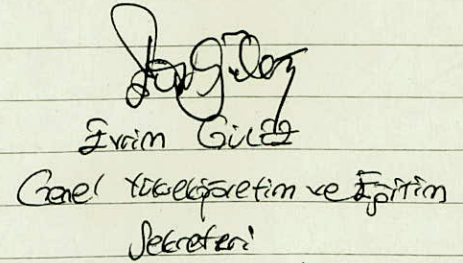 Evrim Gülez
Genel Yükseköğretim ve Eğitim
Sekreteri